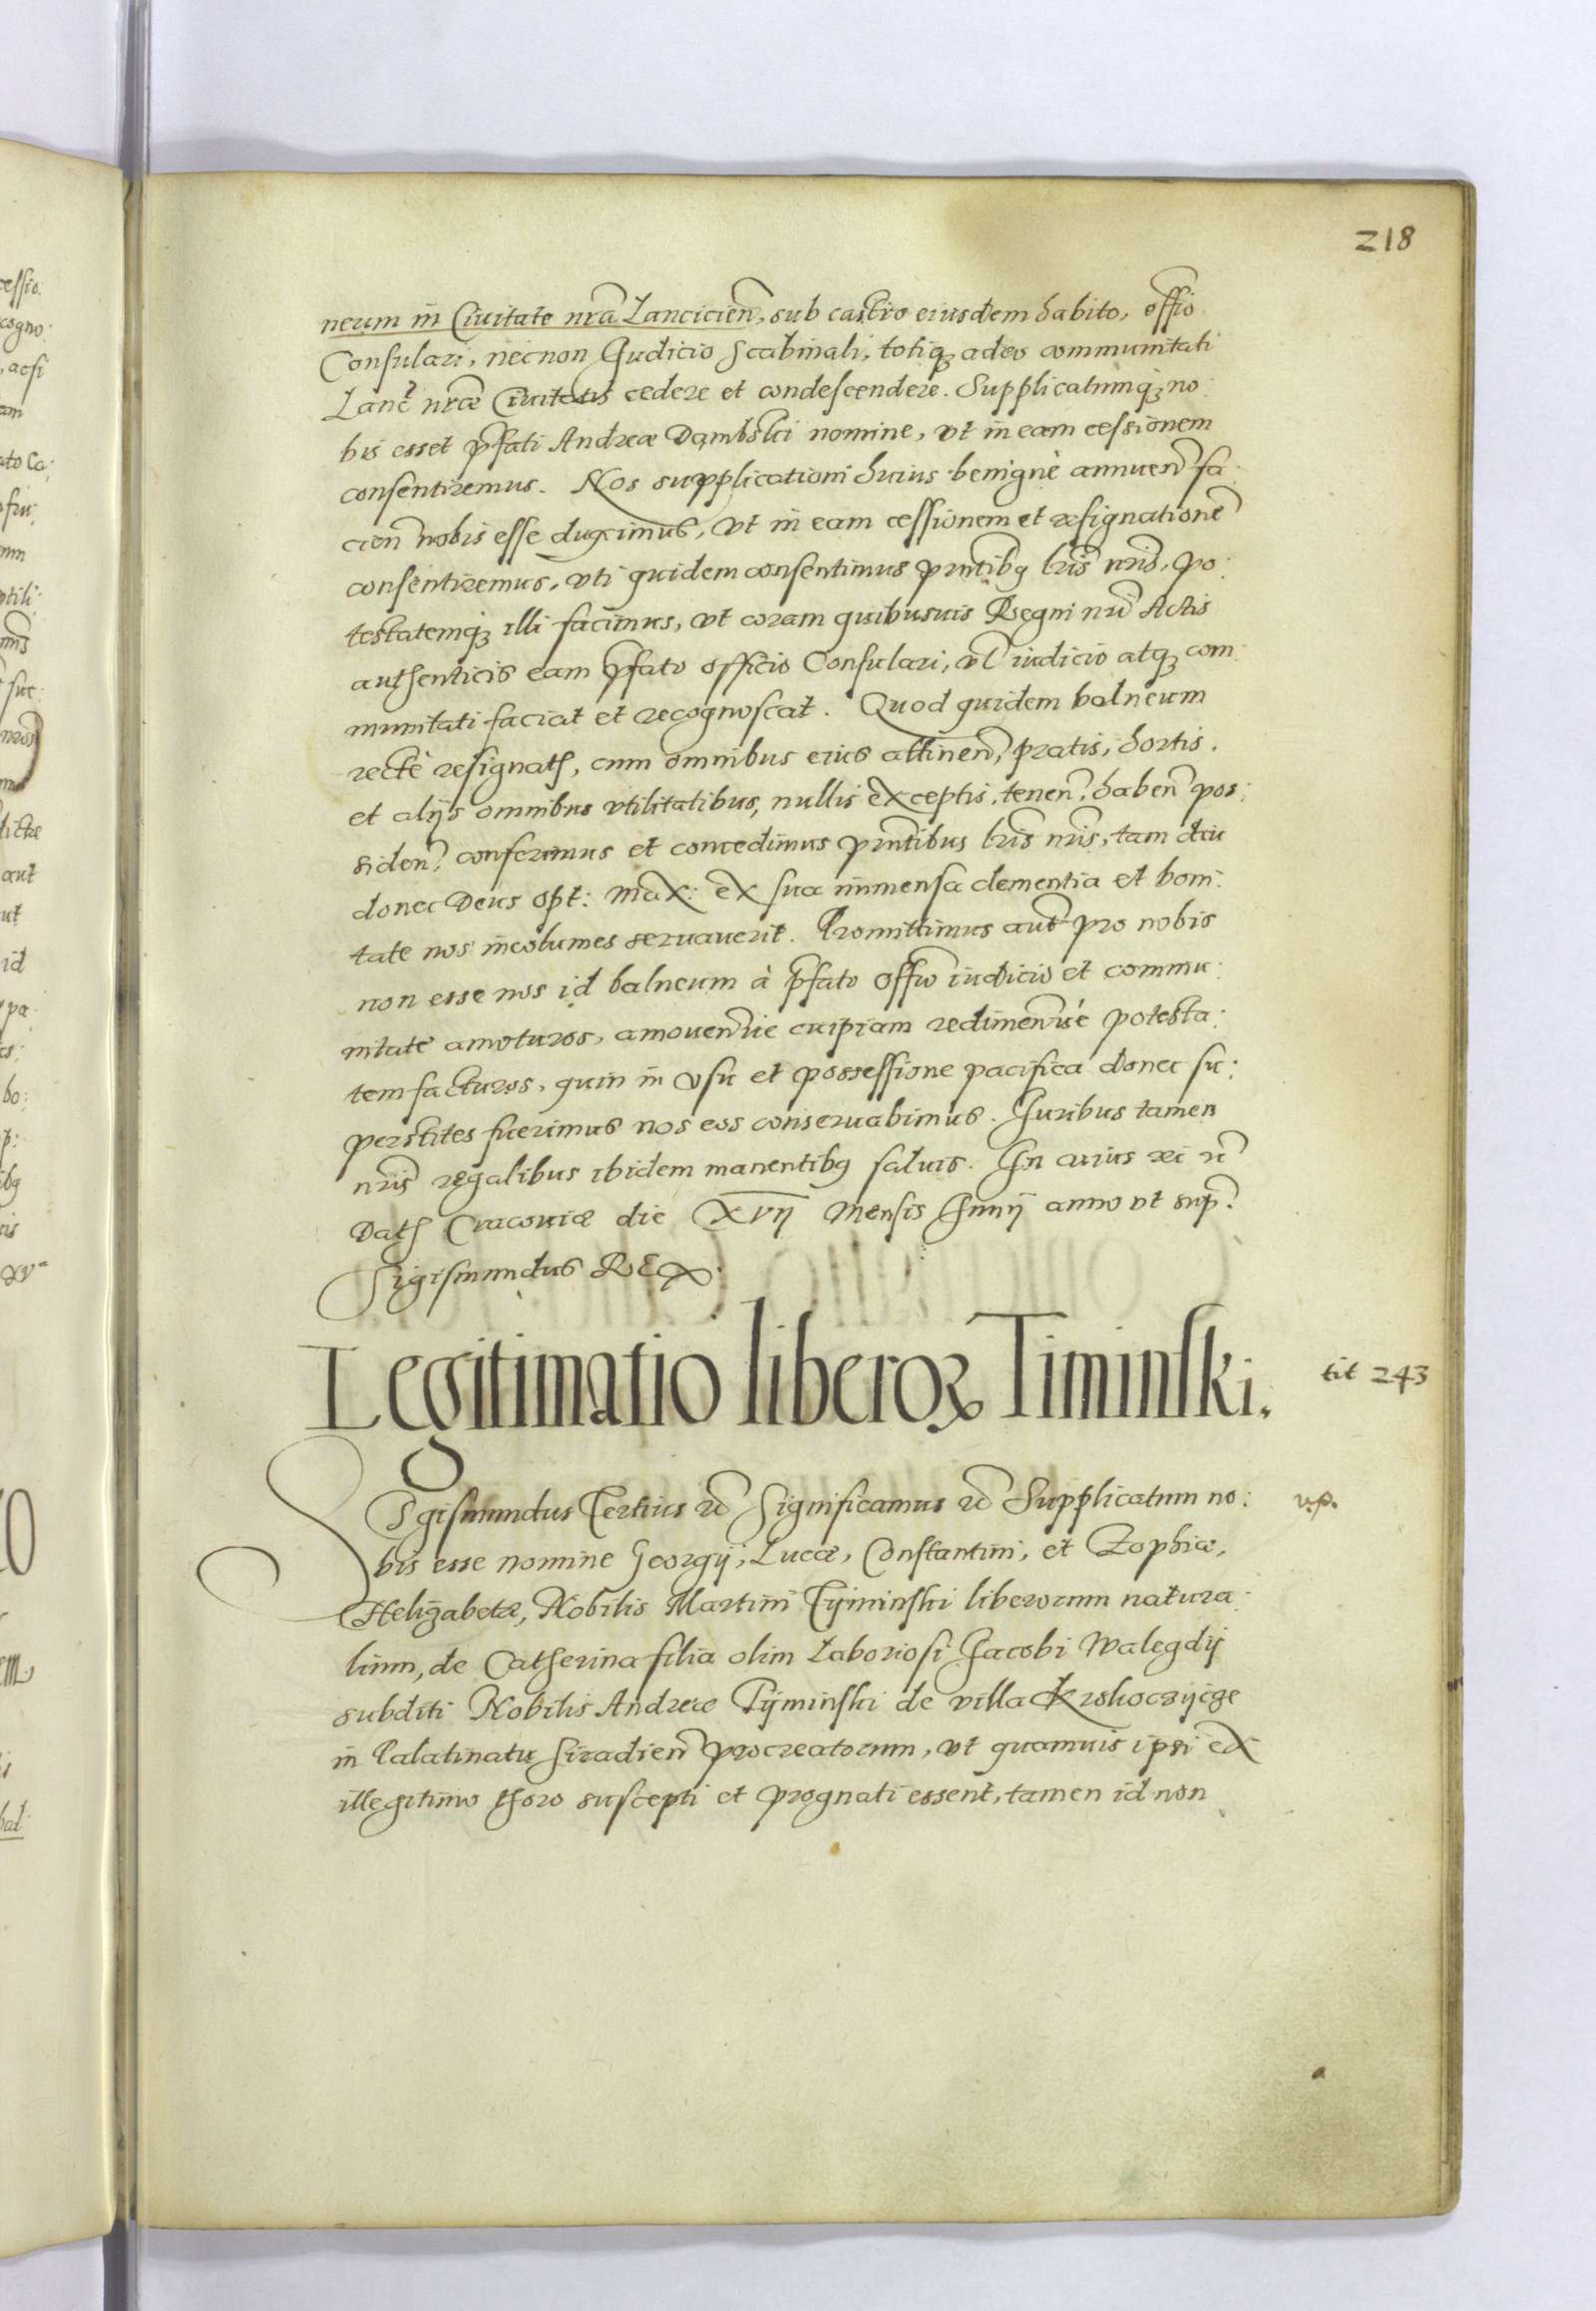 218
neum in Ciuitate nrã Lancicien̄, sub castro eiusdem habito, offio
Consulari, necnon Iudicio Scabinali, totiq; adeo communitati
Lanc̄ nrãe Ciuitatis cedere et condescendere. Supplicatumq; no:
bis esset p̄fati Andreæ Dąmbski nomine, vt in eam cessionem
consentiremus. Nos supplicationi huius benignè annuen̄ fa:
cien̄ nobis esse duximus, vt in eam cessionem et resignationē
consentiremus, vti quidem consentimus pn̄tibq lr̄is nr̄is, po:
testatemq; illi facimus, vt coram quibusuis Regni nr̄i Actis
authenticis eam p̄fato officio Consulari, vl̄ iudicio atq; com:
munitati faciat et recognoscat. Quod quidem balneum
rectè resignatȝ, cum omnibus eius attinen̄, pratis, hortis,
et alijs omnibus vtilitatibus, nullis exceptis, tenen̄, haben̄ pos:
siden̄, conferimus et concedimus pn̄tibus lr̄is nr̄is, tam diu
donec Deus opt: Max: ex sua immensa clementia et boni:
tate nos incolumes seruauerit. Promittimus aut̄ pro nobis
non esse nos id balneum à p̄fato offio iudicio et commu:
nitate amoturos, amouen̄uie cuipiam redimen̄uè potesta:
tem facturos, quin in vsu et possessione pacifica donec su:
perstites fuerimus nos eos conseruabimus. Iuribus tamen
nr̄is regalibus ibidem manentibq saluis. In cuius rei rc̄
Datȝ Cracouiæ die XVIJ Mensis Iunij anno vt sup̄.
Sigismundus REX.
Legitimatio liberoꝝ Timinski.
tit 243
Sigismundus Tertius rc̄ Significamus rc̄ Supplicatum no:
v.p.
bis esse nomine Georgij, Lucæ, Constantini, et Zophiæ,
Helizabetæ, Nobilis Martini Tÿminski liberorum natura:
lium, de Catherina filia olim Laboriosi Jacobi Walegdij
subditi Nobilis Andreæ Tÿminski de villa Krokoczÿcze
in Palatinatu Siradien̄ procreatorum, vt quamuis ipsi ex
illegitimo thoro suscepti et prognati essent, tamen id non